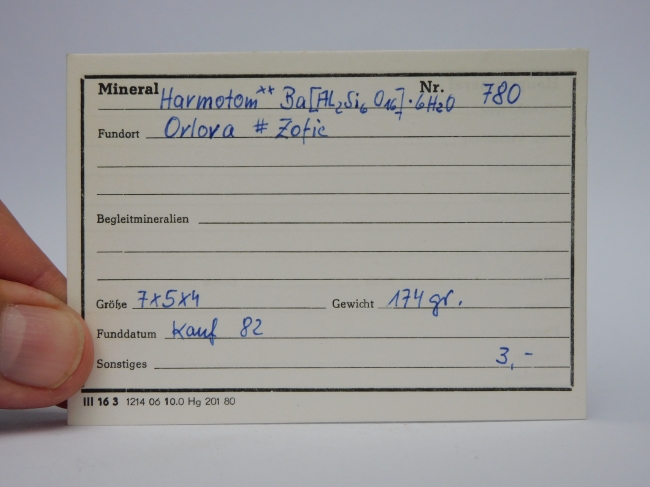 Mineral Harmotom^xx Ba[Al₂Si₆O₁₆]·6H₂O Nr. 780
Fundort Orlova # Zofie
Begleitmineralien
Größe 7x5x4 Gewicht 174 gr.
Funddatum Kauf 82
Sonstiges 3,-
III 16 3 1214 06 10.0 Hg 201 80